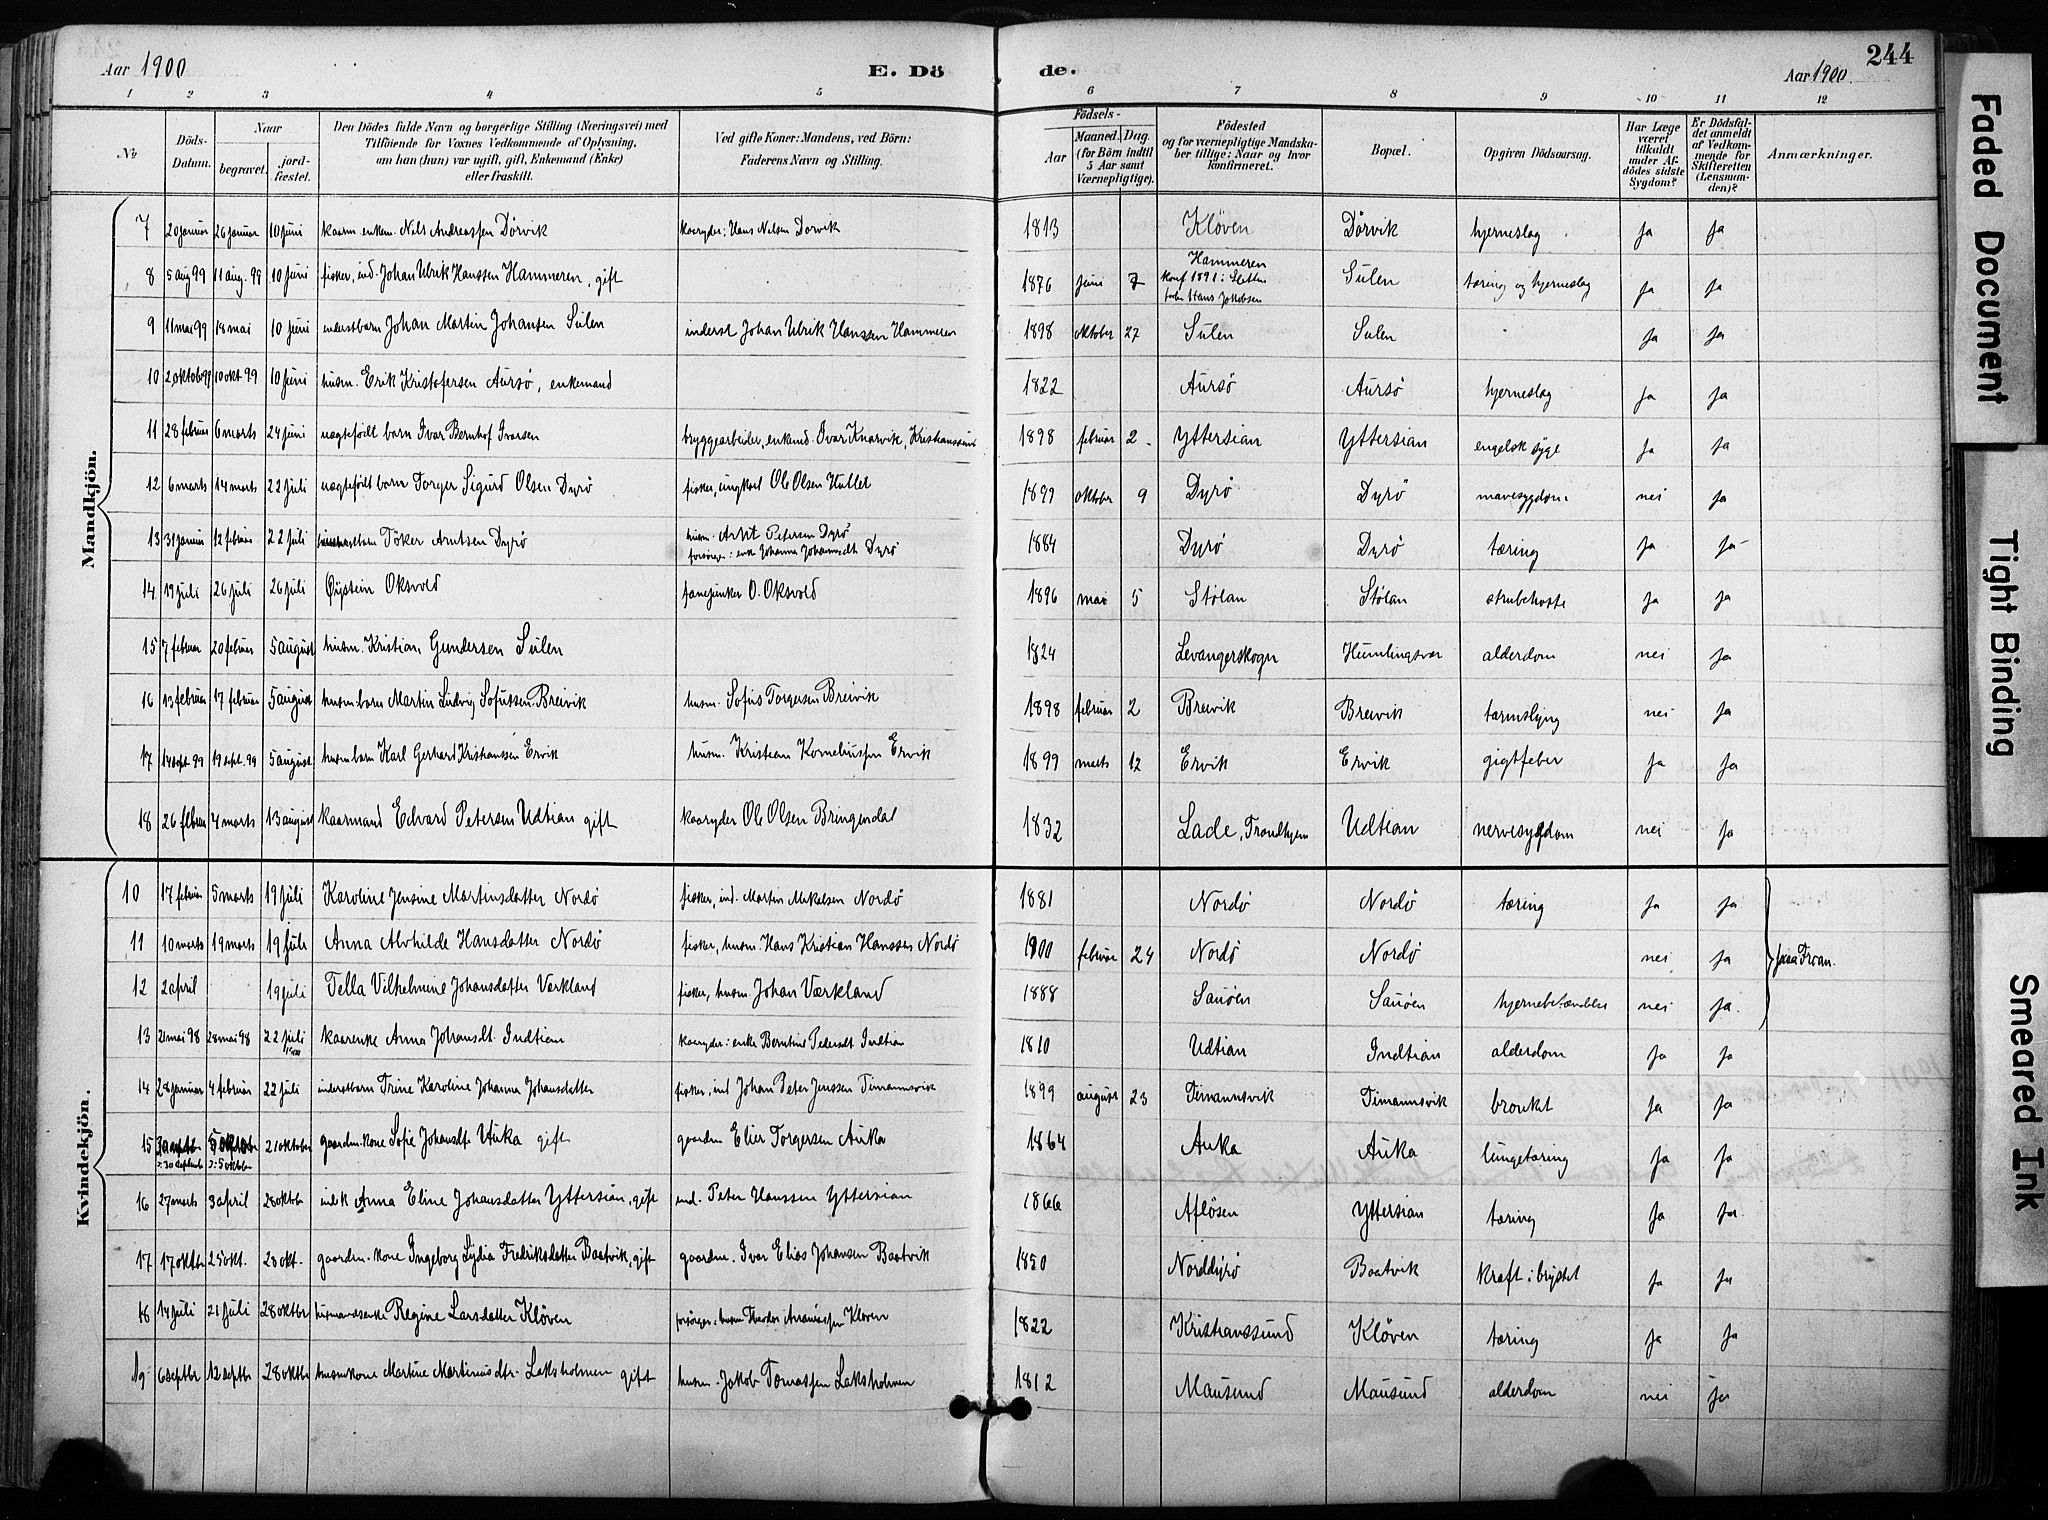 Aar 1900 E. Dö de. Aar 1900. 244
1 2 3 4 5 6 7 8 9 10 11 12
No Döds-Datum. Naar begravet. jordfæstet. Den Dödes fulde Navn og borgerlige Stilling (Næringsvei) med Tilföiende for Voxnes Vedkommende af Oplysning, om han (hun) var ugift, gift, Enkemand (Enke) eller fraskilt. Ved gifte Koner: Mandens, ved Börn: Faderens Navn og Stilling. Födsels- Aar Maaned. Dag. (for Börn indtil 5 Aar samt Værnepligtige). Födested og for værnepligtige Mandskaber tillige: Naar og hvor konfirmeret. Bopæl. Opgiven Dödsaarsag. Har Læge været tilkaldt under Afdödes sidste Sygdom? Er Dödsfaldet anmeldt af Vedkommende for Skifteretten (Lensmanden)? Anmærkninger.
Mandkjön.
7 20 januar 26 januar 10 juni kaarm. enkem. Nils Andreassen Dörvik kaaryder: Hans Nilsen Dorvik 1813 Klöven Dörvik hjerneslag ja ja
8 5 aug 99 11 aug. 99 10 juni fisker, ind. Johan Ulrik Hanssen Hammeren, gift 1876 juni 7 Hammeren konf 1891 i Sletta Hans Jakobsen Sulen tæring og hjerneslag ja ja
9 11 mai 99 18 mai 10 juni inderstbarn Johan Martin Johansen Sulen inderst Johan Ulrik Hanssen Hammeren 1898 oktober 27 Sulen Sulen ja ja
10 2 oktob 99 10 okt 99 10 juni husm. Erik Kristofersen Aursö, enkemand 1822 Aursö Aursö hjerneslag ja ja
11 28 februar 6 marts 24 juni uægtefödt barn Ivar Bernhof Ivarsen bryggearbeider, enkemd. Ivar Knarvik, Kristianssund 1898 februar 2 Yttersian Yttersian engelsk syge ja ja
12 6 marts 14 marts 22 juli uægtefödt barn Torger Sigurd Olsen Dyrö fisker, ungkarl Ole Olsen Hallet 1899 oktober 9 Dyrö Dyrö mavesygdom nei ja
13 31 januar 12 februar 22 juli Töker Arntsen Dyrö husm. Arnt Petersen Dyrö forsörger: enke Johanna Johannesdt. Dyrö 1884 Dyrö Dyrö tæring ja ja
14 19 juli 26 juli 26 juli Öystein Oksvold fanejunker O. Oksvold 1896 mai 5 Stölan Stölan strubehoste ja ja
15 7 februar 20 februar 5 august husm. Kristian Gundersen Sulen 1824 Levangerskogn Humlingsvær alderdom nei ja
16 13 februar 17 februar 5 august husm. barn Martin Ludvig Sofussen Breivik husm. Sofus Torgersen Breivik 1898 februar 2 Breivik Breivik tarmslyng nei ja
17 14 sept 99 19 sept. 99 5 august husm barn Karl Gerhard Kristianssen Ervik husm. Kristian Korneliussen Ervik 1899 marts 12 Ervik Ervik gigtfeber ja ja
18 26 februar 4 marts 13 august kaarmand Edvard Petersen Udtian gift kaaryder Ole Olsen Bringendal 1832 Lade, Trondhjem Udtian nervesygdom nei ja
Kvindekjön.
10 17 februar 5 marts 19 juli Karoline Jensine Martinsdatter Nordö fisker, ind. Martin Mikelsen Nordö 1881 Nordö Nordö tæring ja ja
11 10 marts 19 marts 19 juli Anna Alvhilde Hansdatter Nordö fisker, husm. Hans Kristian Hanssen Nordö 1900 februar 24 Nordö Nordö nei ja paa Froan.
12 2 april 19 juli Tella Vilhelmine Johansdatter Værkland fisker, husm. Johan Værkland 1888 Sauöen Sauöen hjernebetændelse nei ja
13 21 mai 98 28 mai 98 22 juli kaarenke Anna Johansdt. Indtian kaaryder: enke Berntine Pedersdt Indtian 1810 Udtian Indtian alderdom ja ja
14 28 januar 4 februar 22 juli inderstbarn Trine Karoline Johanna Johansdatter fisker, ind Johan Peter Jenssen Timannsvik 1899 august 23 Timannsvik Timannsvik bronkit ja ja
15 30 septbr ɔ: 30 september 5 oktober ɔ: 5 oktober 21 oktober gaardm. kone Sofie Johansdtr Auka gift gaardm Elier Torgersen Auka 1864 Auka Auka lungetæring ja ja
16 27 marts 3 april 28 oktbr ind.k Anna Eline Johansdatter Yttersian, gift ind. Peter Hanssen Yttersian 1866 Aflösen Yttersian tæring ja ja
17 17 oktbr 25 okt. 28 okt. gaardm. kone Ingeborg Lydia Fredriksdatter Baatvik, gift gaardm. Ivar Elias Johansen Baatvik 1850 Norddyrö Baatvik kræft i brystet ja ja
18 14 juli 21 juli 28 oktbr husmandsenke Regine Larsdatter Klöven forsörger: husm Theodor Ananiassen Klöven 1822 Kristianssund Klöven tæring ja ja
19 6 septbr 12 septbr 28 oktbr husm.kone Martine Martinusdtr. Laksholmen gift husm. Jakob Tomassen Laksholmen 1812 Mausund Mausund alderdom nei ja
Faded Document
Tight Binding
Smeared Ink